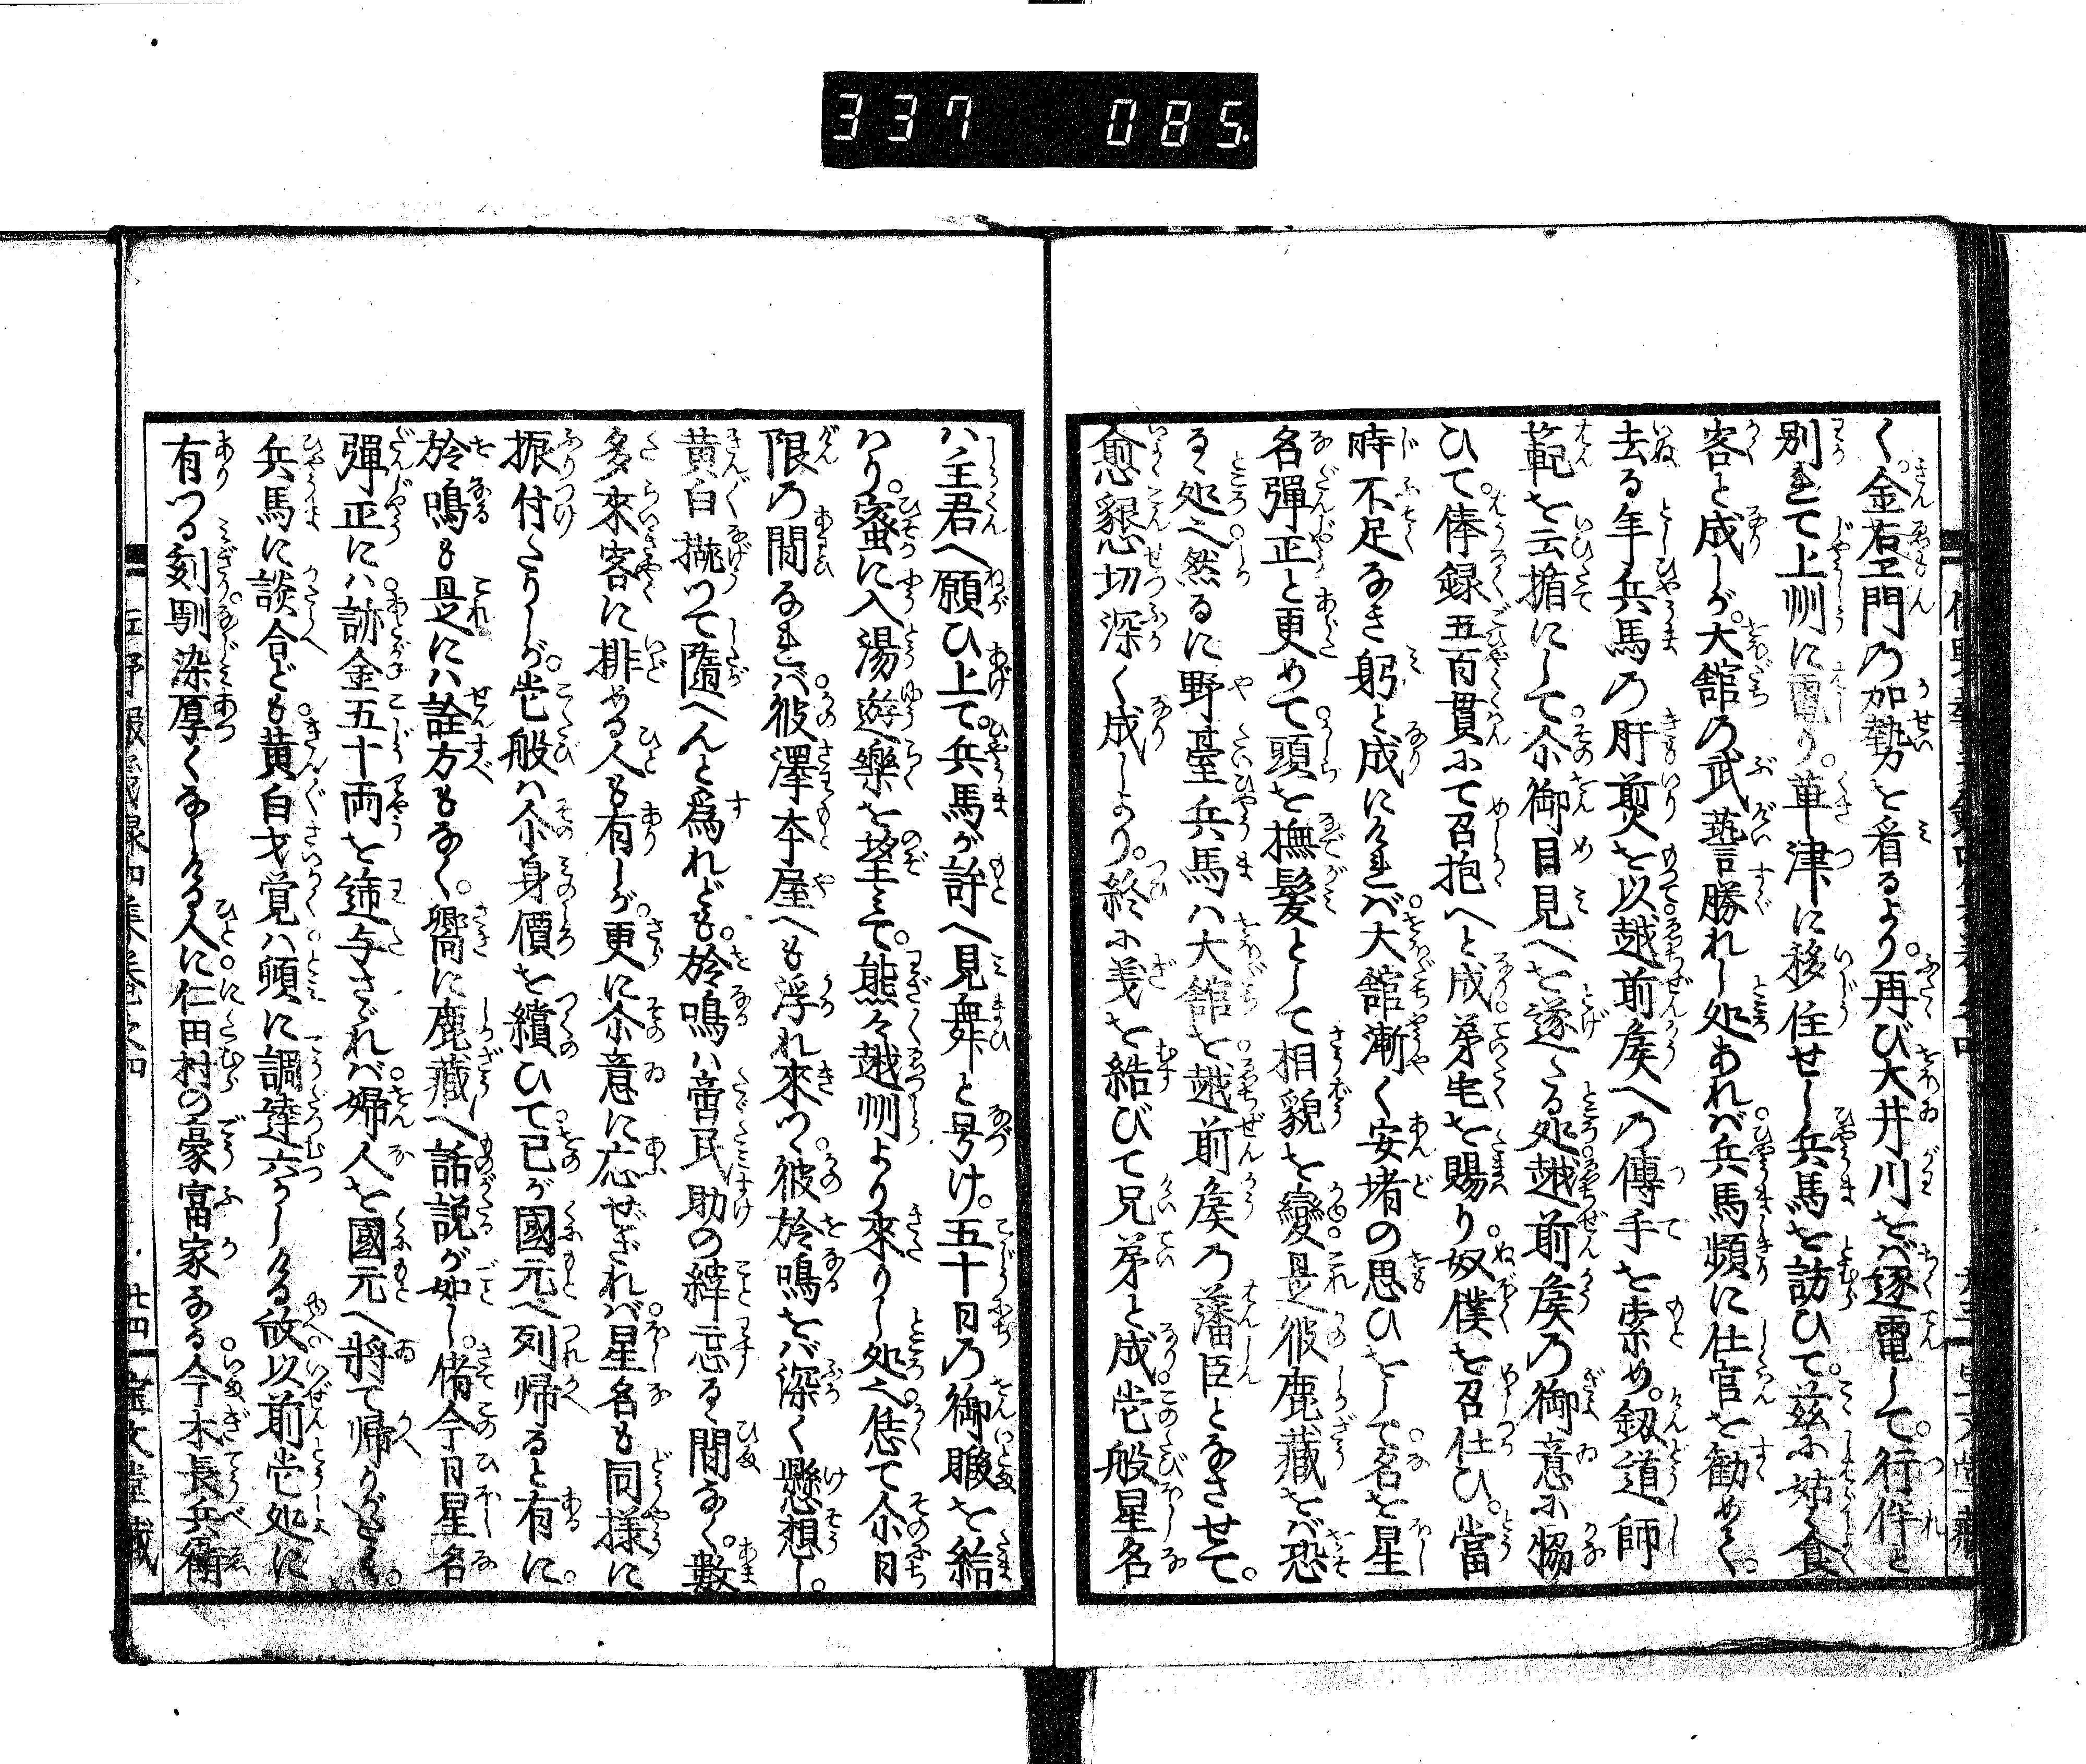 337 085.
く金右衛門の加勢を看るより。再び大井川をば逐電して。行伴と
別れて上州に竄り。草津に移住せし兵馬を訪ひて。茲に姑く食
客と成しが。大舘の武藝勝れし処あれば兵馬頻に仕官を勧めて。
去る年兵馬の肝煎を以越前矦への傳手を索め。釼道師
範を云揗にして尒御目見へを遂たる処越前矦の御意に協
ひて。俸録五百貫にて召抱へと成弟宅を賜り奴僕を召仕ひ。當
時不足なき躬と成にければ大舘漸く安堵の思ひをして名を星
名彈正と更めて頭を撫髪として相貌を變是彼鹿藏をば恐
るゝ処也然るに野臺兵馬ハ大舘を越前矦の藩臣となさせて。
愈懇切深く成しより。終に義を結びて兄弟と成。這般星名
ハ主君へ願ひ上て。兵馬が許へ見舞と号け。五十日の御暇を給
ハり。窃に入湯遊樂を望みて。態々越州より來りし処也。恁て尒日
限の間なれば彼澤本屋へも浮れ來つゝ彼於鳴をば深く懸想し。
黄白擲つて隨へんと為れども。於鳴ハ啻民助の縡忘るゝ間なく。數
多來客に挑める人も有しが。更に尒意に応ぜざれば星名も同様に
振付たりしが。這般ハ尒身價を續ひて已が國元へ列帰ると有に。
於鳴も是にハ詮方もなく。嚮に鹿藏へ話説が如し。偖今日星名
彈正にハ跡金五十両を遞与さゞれば婦人を國元へ将て帰りがたく。
兵馬に談合ども黄白才覚ハ頓に調達六かしける故以前這処に
有つる刻馴染厚くなしける人に仁田村の豪富家なる今木長兵衞
廿四